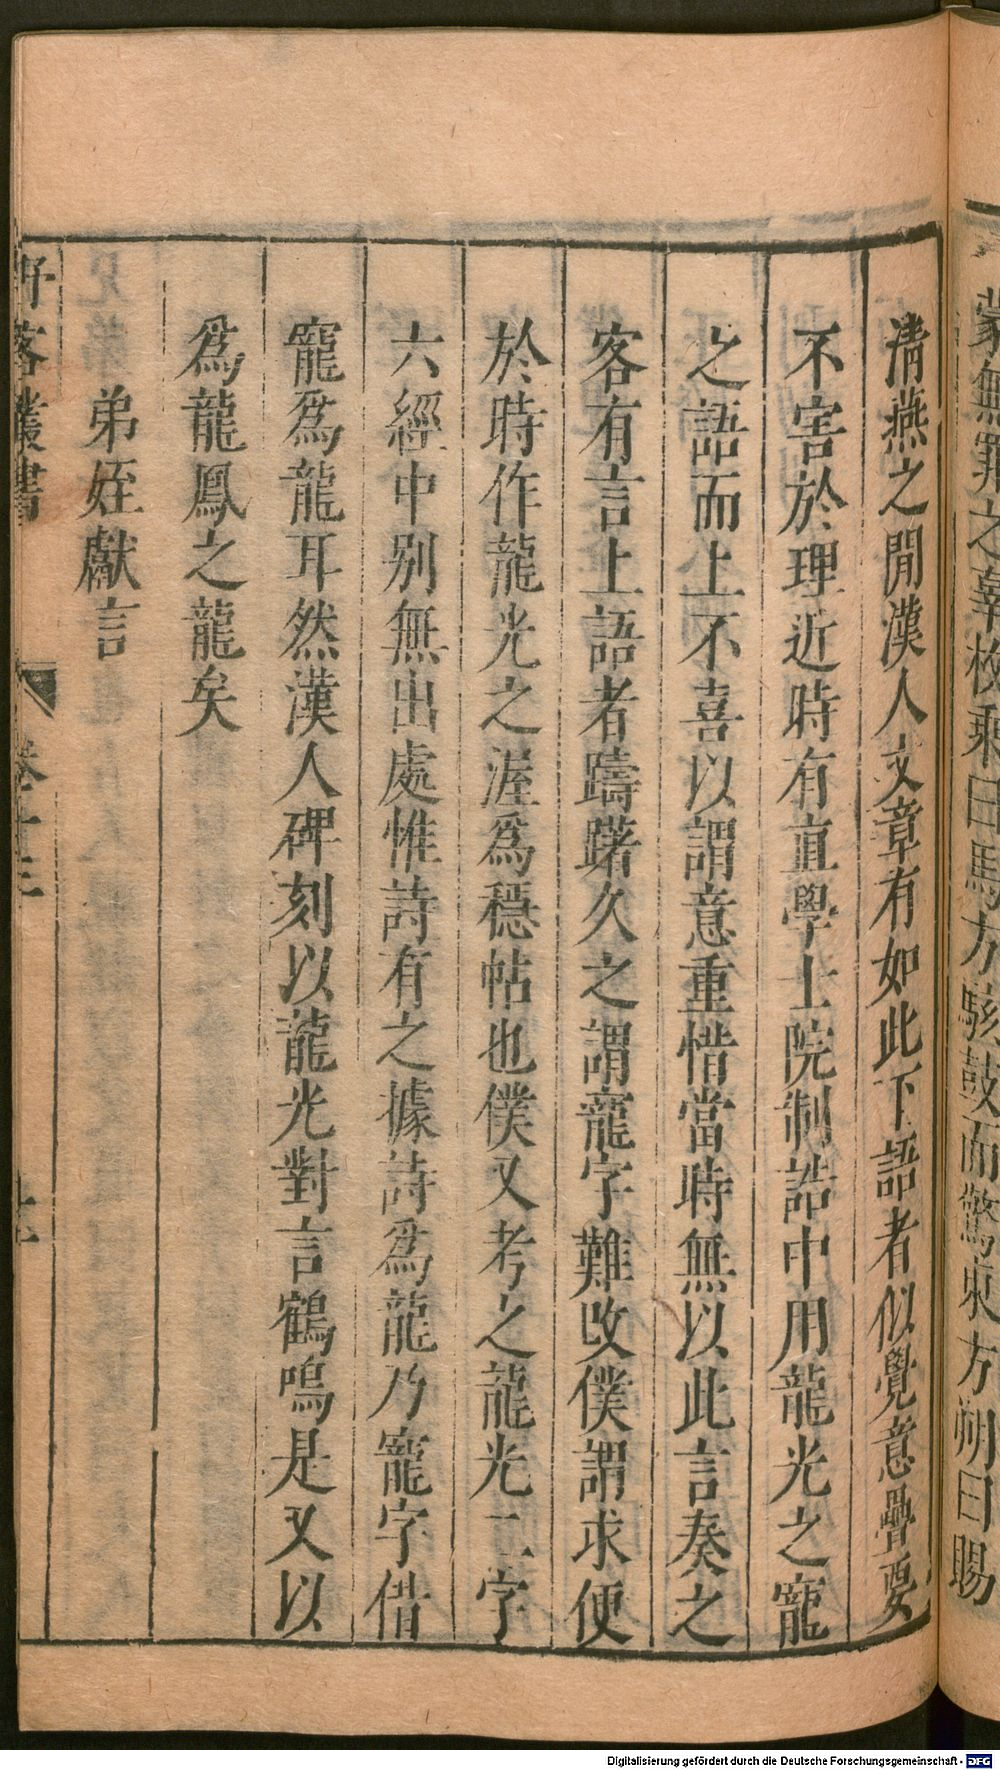 蒙無罪之辜枚乘曰馬方駭鼓而驚東方朔曰賜
清燕之閒漢人文章有如此下語者似覺意疊要
不害於理近時有直學士院制誥中用龍光之寵
之語而上不喜以謂意重惜當時無以此言奏之
客有言上語者躊躇久之謂寵字難改僕謂求便
於時作龍光之渥爲穩帖也僕又考之龍光二字
六經中別無出處惟詩有之據詩爲龍乃寵字借
寵爲龍耳然漢人碑刻以龍光對言鶴鳴是又以
爲龍鳳之龍矣
弟姪獻言
野客叢書 卷十三
Digitalisierung gefördert durch die Deutsche Forschungsgemeinschaft - DFG